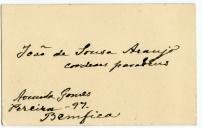 João de Sousa Araujo
cordeaes parabens
Avenida Gomes
Pereira - 97.
Bemfica